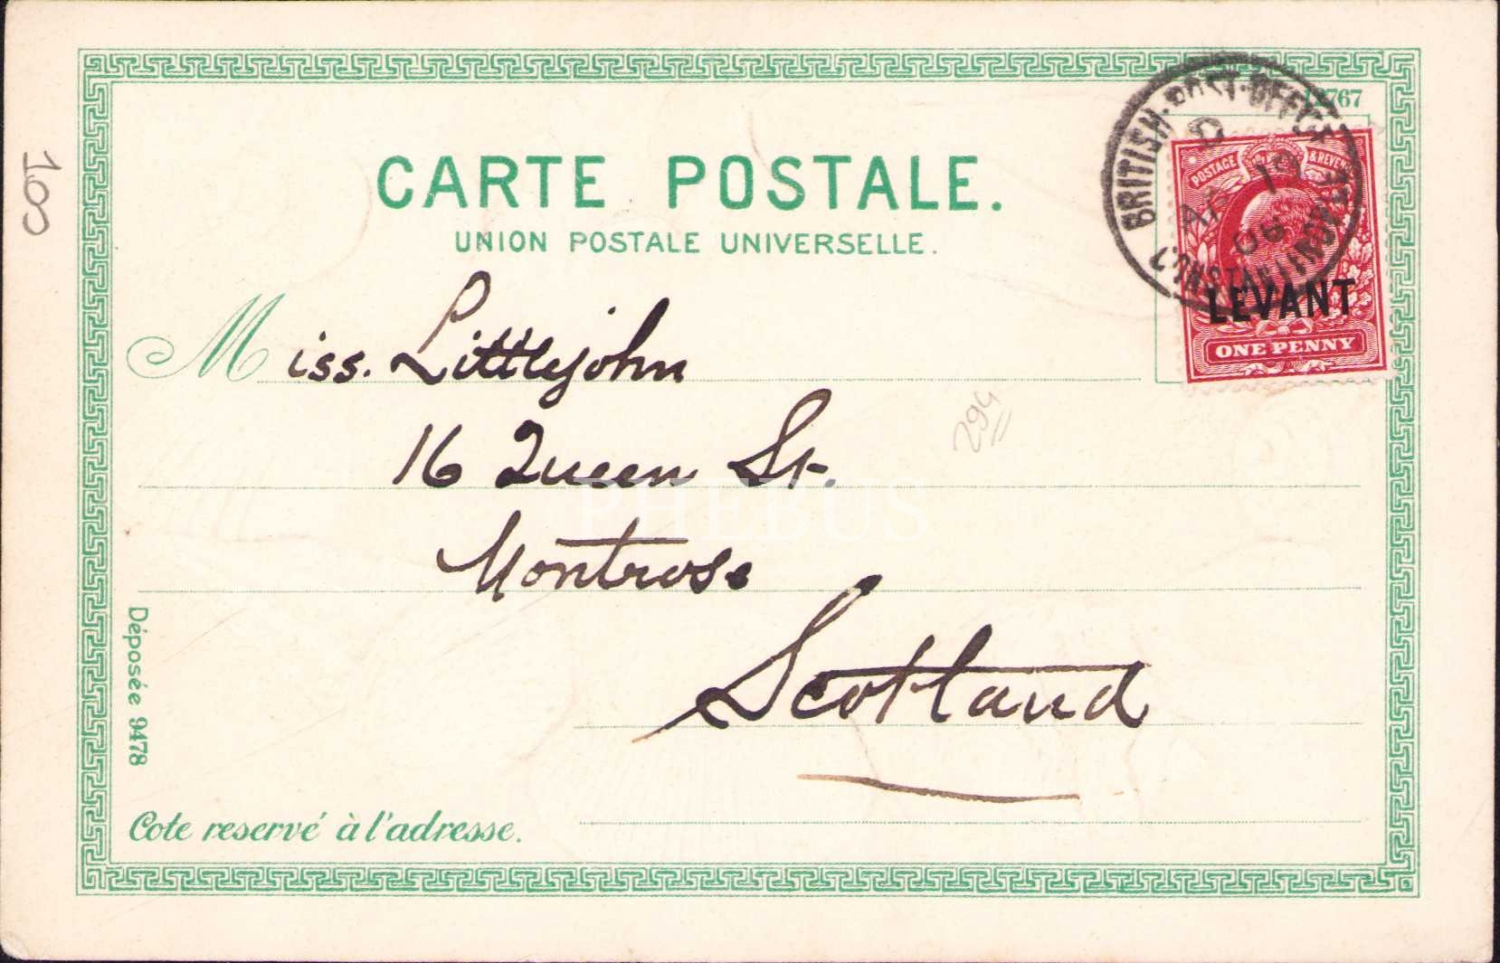 12767
BRITISH·POST·OFFICE
CONSTANTINOPLE
AP
06
POSTAGE & REVENUE
LEVANT
ONE PENNY
100
CARTE POSTALE.
UNION POSTALE UNIVERSELLE.
Miss. Littlejohn
294
16 Queen St.
PHEBUS
Montrose
Scotland
Déposée 9478
Cote reservé à l'adresse.